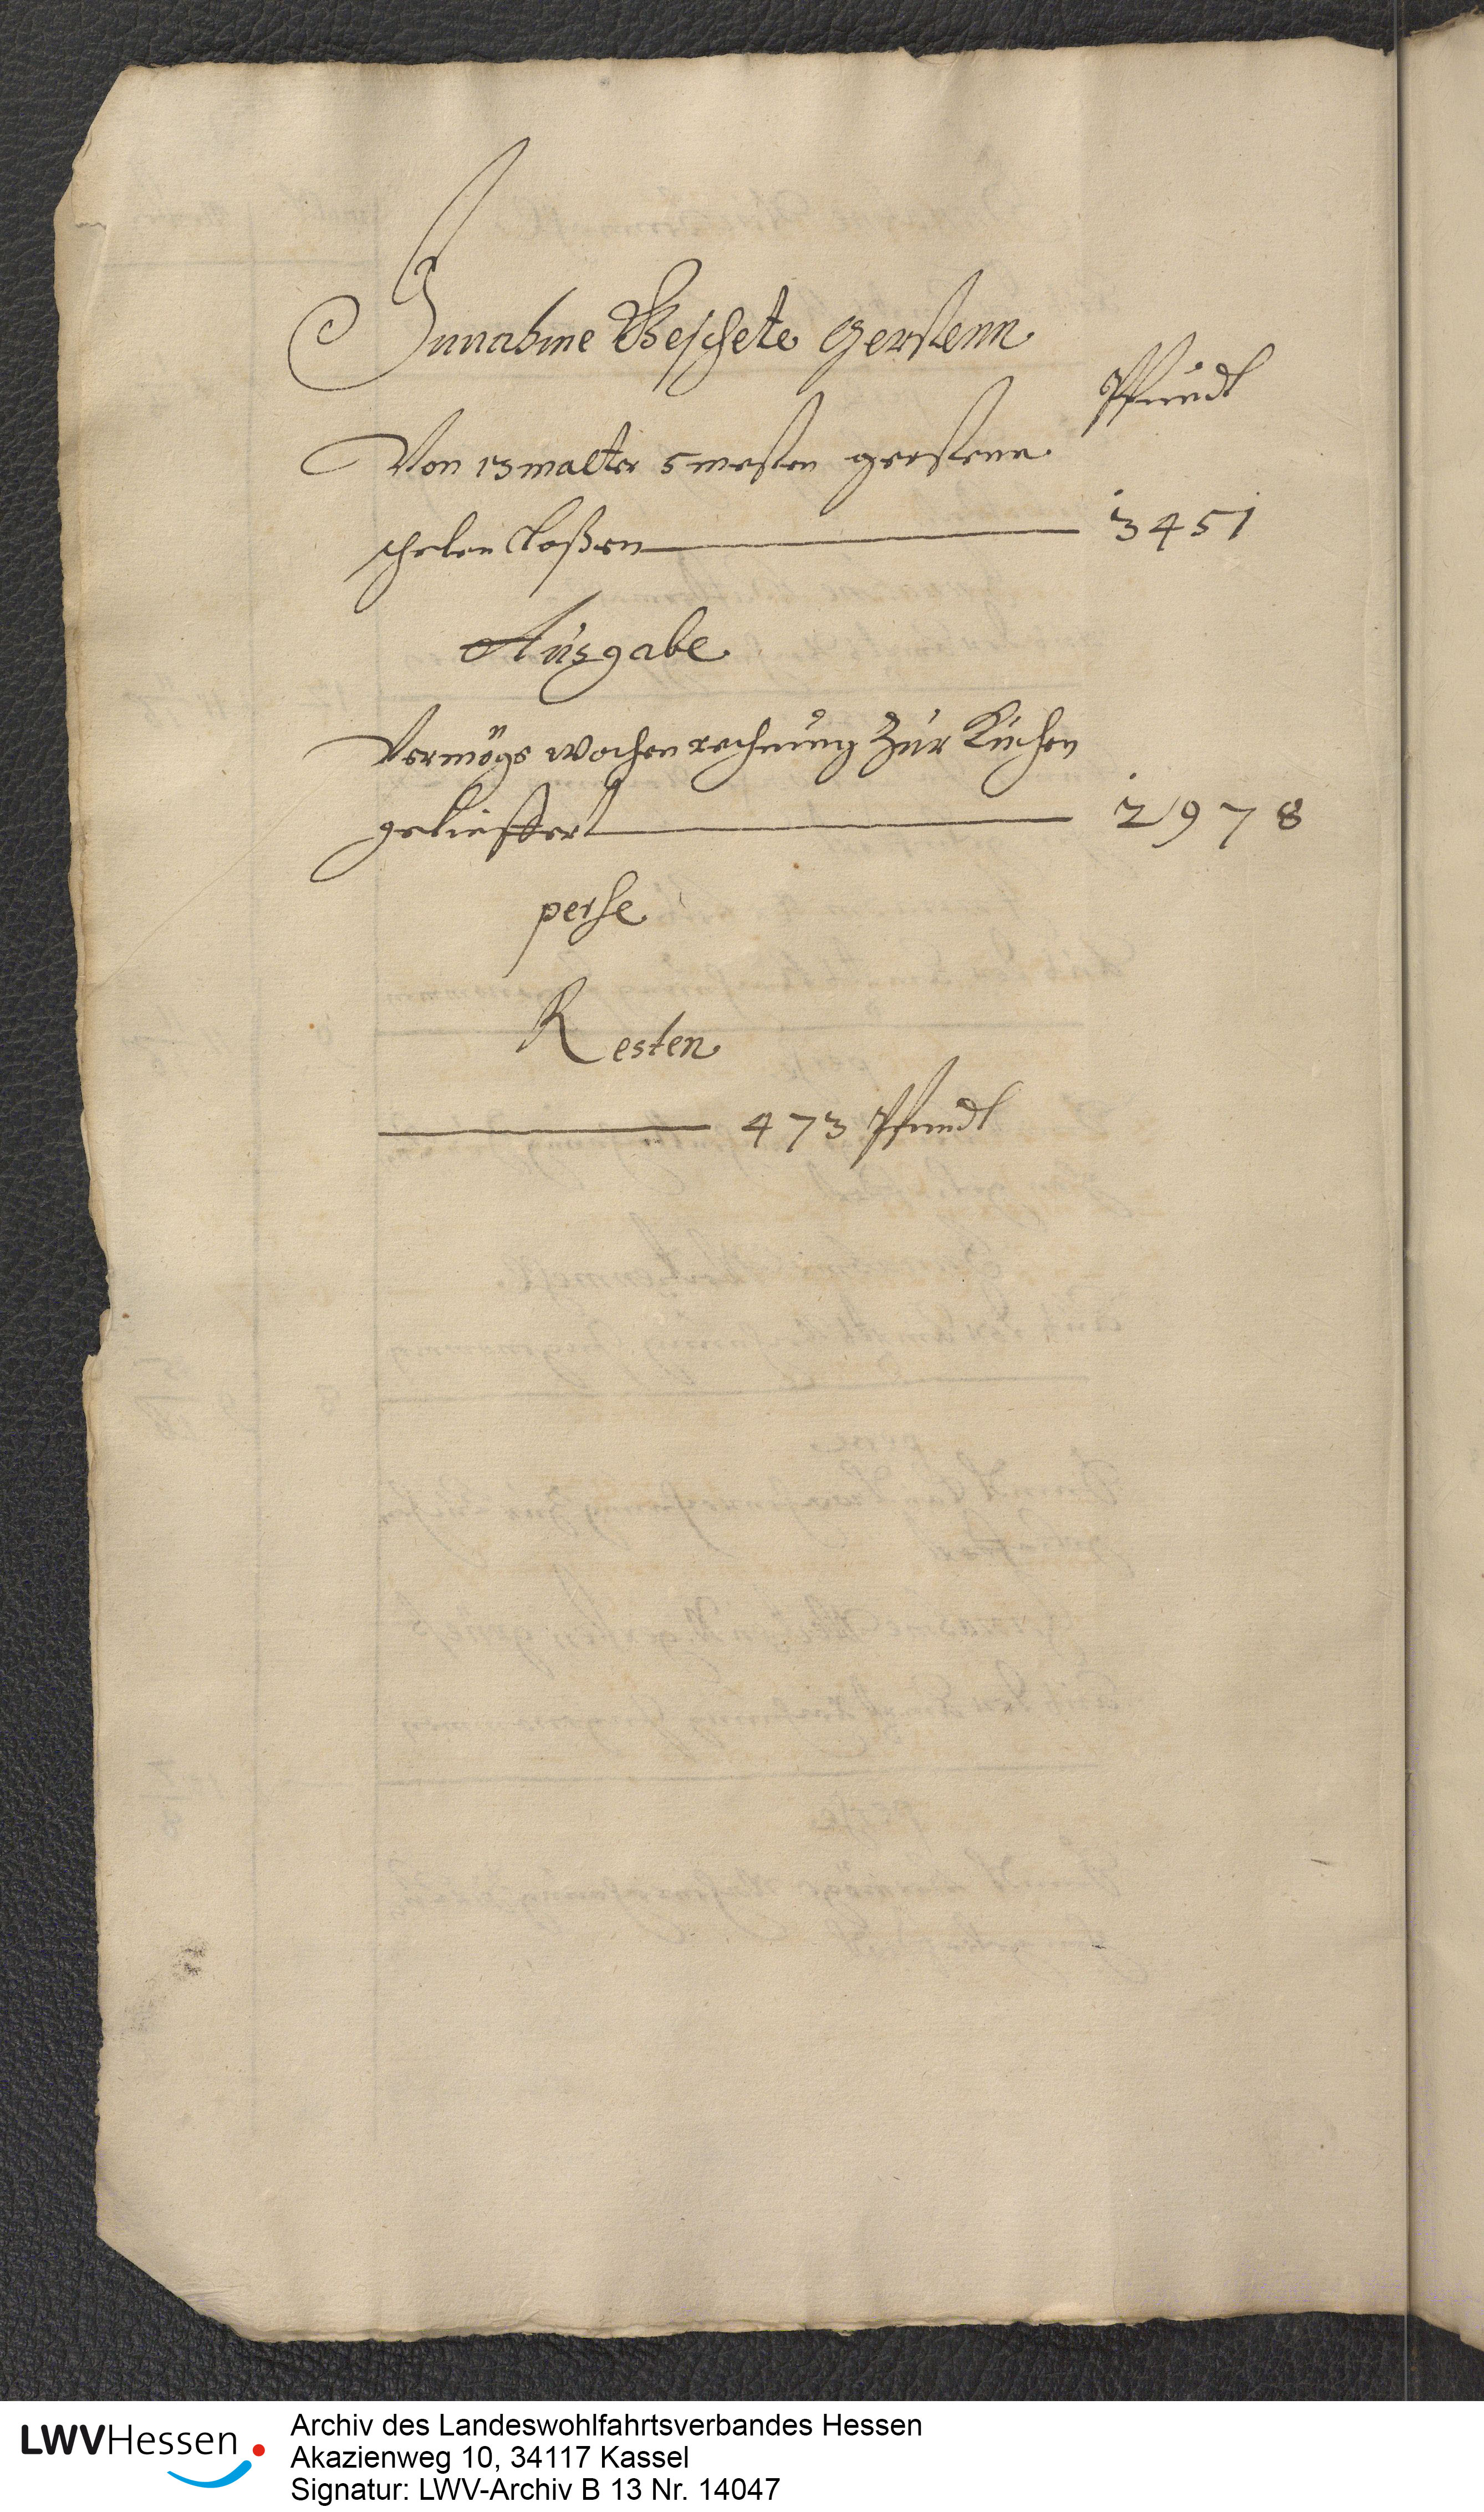 Innahme Geschete gersten
Pfundt
Von 13 malter 5 mesten gerstenn
schelen Laßen 3451
Ausgabe
Vermöge wochen rechnung Zur Küchen
geliessert 2978
perse
Resten
473 Pfundt
LWVHessen
Archiv des Landeswohlfahrtsverbandes Hessen
Akazienweg 10, 34117 Kassel
Signatur: LWV-Archiv B 13 Nr. 14047